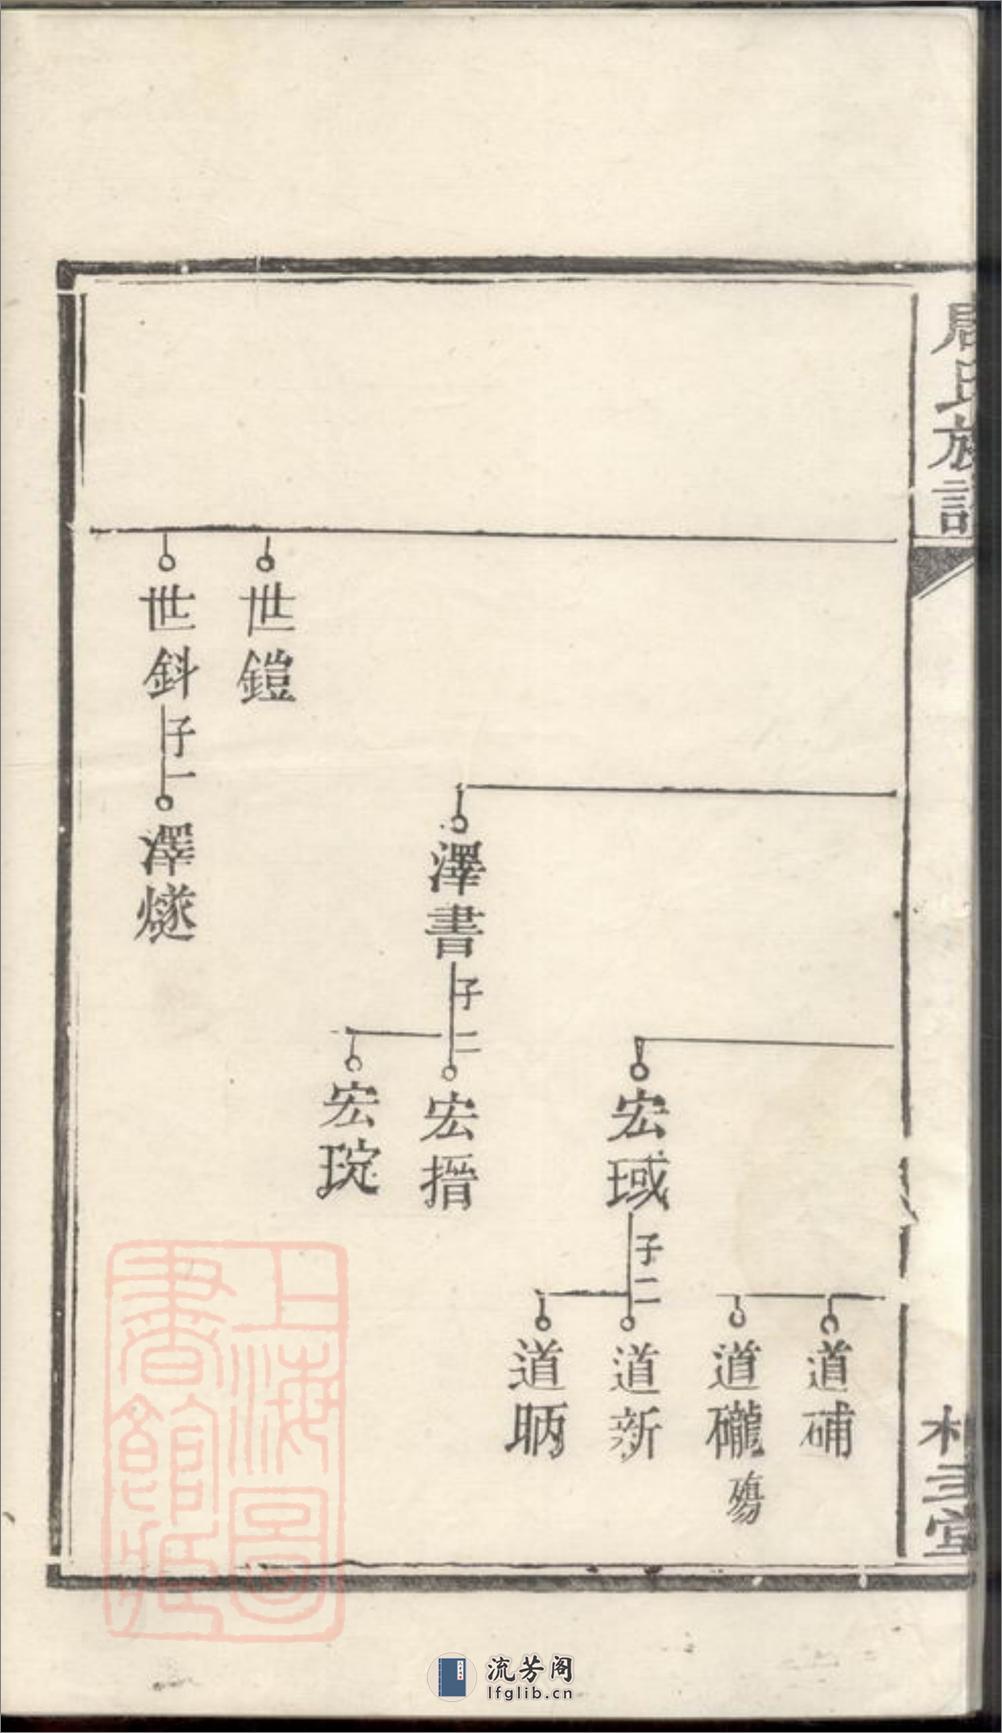 周氏族譜
道碃
道礲 殤
宏域 子二
道新
道昞
澤書 子二
宏搢
宏琔
世鎧
世鈄 子一
澤燧
上海圖
書館藏
流芳阁
lfglib.cn